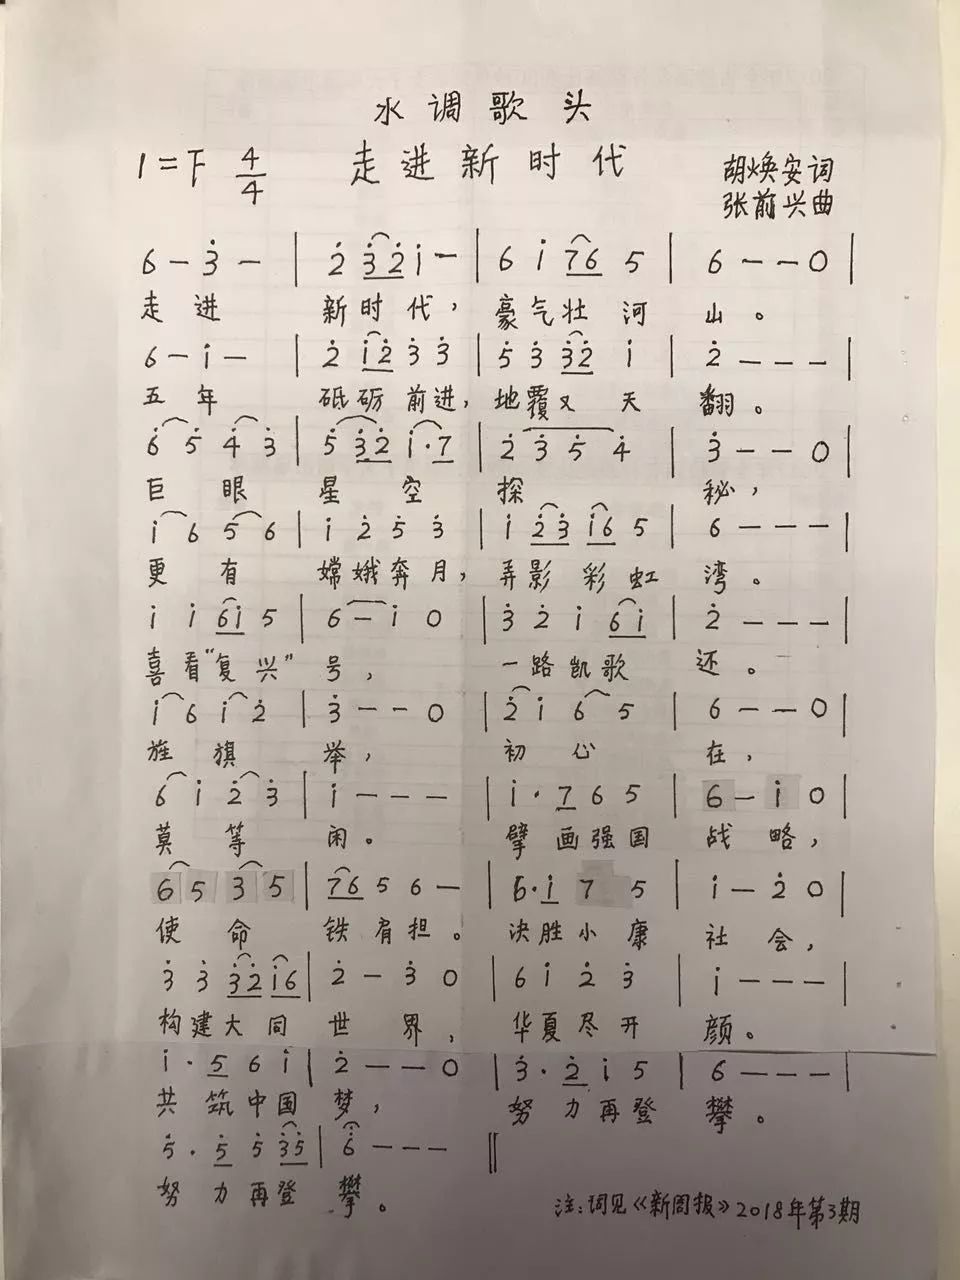 水调歌头
1=F 4/4 走进新时代 胡焕安词
张前兴曲
6 — 3̇ — | 2̇ 3̇ 2̇ i — | 6 i 7 6 5 | 6 — — 0 |
走进 新时代， 豪气壮河山。
6 — i — | 2̇ i 2̇ 3̇ 3̇ | 5̇ 3̇ 3̇ 2̇ i | 2̇ — — — |
五年 砥砺前进，地覆又天翻。
6̇ 5̇ 4̇ 3̇ | 5̇ 3̇ 2̇ i · 7 | 2̇ 3̇ 5̇ 4̇ | 3̇ — — 0 |
巨眼 星空 探 秘，
i 6 5 6 | i 2̇ 5̇ 3̇ | i 2̇ 3̇ i 6 5 | 6 — — — |
更有 嫦娥奔月，弄影彩虹湾。
i i 6 i 5 | 6 — i 0 | 3̇ 2̇ i 6 i | 2̇ — — — |
喜看“复兴”号， 一路凯歌还。
i 6 i 2̇ | 3̇ — — 0 | 2̇ i 6 5 | 6 — — 0 |
旌旗 举， 初心 在，
6 i 2̇ 3̇ | i — — — | i · 7 6 5 | 6 — i 0 |
莫等 闲。 擘画强国战略，
6 5 3 5 | 7 6 5 6 — | 6 · i 7 5 | i — 2̇ 0 |
使命 铁肩担。 决胜小康社会，
3̇ 3̇ 3̇ 2̇ i 6 | 2̇ — 3̇ 0 | 6 i 2̇ 3̇ | i — — — |
构建大同世界， 华夏尽开颜。
i · 5 6 i | 2̇ — — 0 | 3̇ · 2̇ i 5 | 6 — — — |
共筑中国梦， 努力再登攀。
5̇ · 5̇ 5̇ 3̇ 5̇ | 6̇ — — — ‖
努力再登攀。
注：词见《新周报》2018年第3期